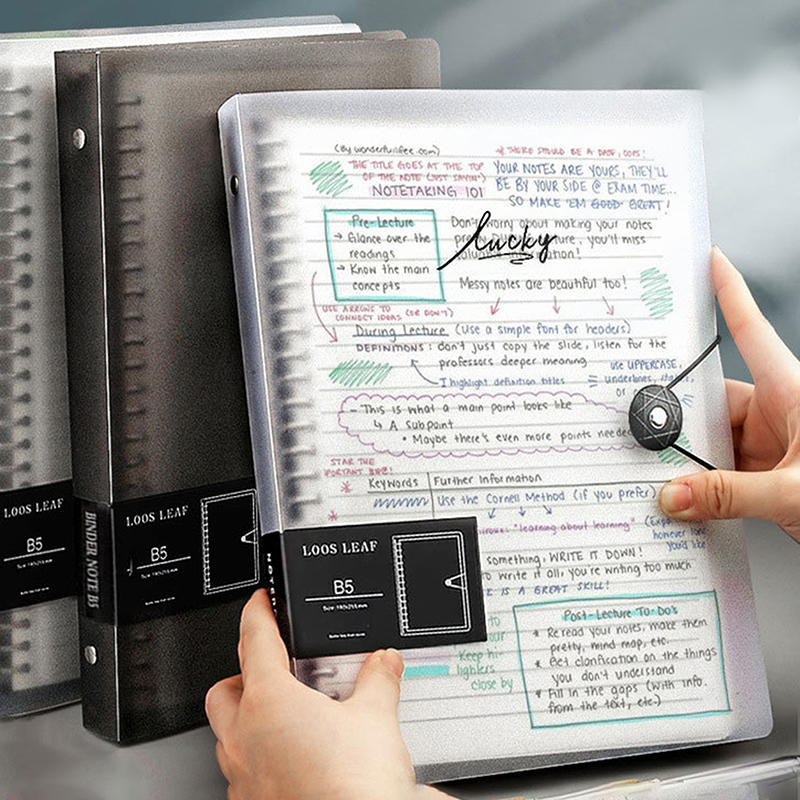 (By wonderfullfee.com)
* THERE SHOULD BE A DATE, OOPS!
THE TITLE GOES AT THE TOP
OF THE NOTE (JUST SAYIN')
NOTETAKING 101
YOUR NOTES ARE YOURS, THEY'LL
BE BY YOUR SIDE @ EXAM TIME...
SO MAKE 'EM GOOD GREAT!
Pre-Lecture
→ Glance over the
readings
→ Know the main
concepts
Don't worry about making your notes
pretty, you'll miss
lucky
Messy notes are beautiful too!
USE ARROWS TO
CONNECT IDEAS (OR DON'T)
During Lecture (use a simple font for headers)
DEFINITIONS: don't just copy the slide, listen for the
professors deeper meaning
I highlight definition titles
use UPPERCASE,
underlines,
or
- This is what a main point looks like
↳ A Subpoint
• Maybe there's even more points needed
STAR THE
Keywords
Further Information
Use the Cornell Method (if you prefer)
"learning about learning"
however
you'd like
something, WRITE IT DOWN!
to write it all, you're writing too much
IS A GREAT SKILL!
to
your
Keep hi-
lighters
close by
Post-Lecture To-Do's
* Reread your notes, make them
pretty, mind map, etc.
* Get clarification on the things
you don't understand
* Fill in the gaps (with info.
from the text, etc.)
LOOS LEAF
B5
LOOS LEAF
B5
BINDER NOTE B5
LOOS LEAF
B5